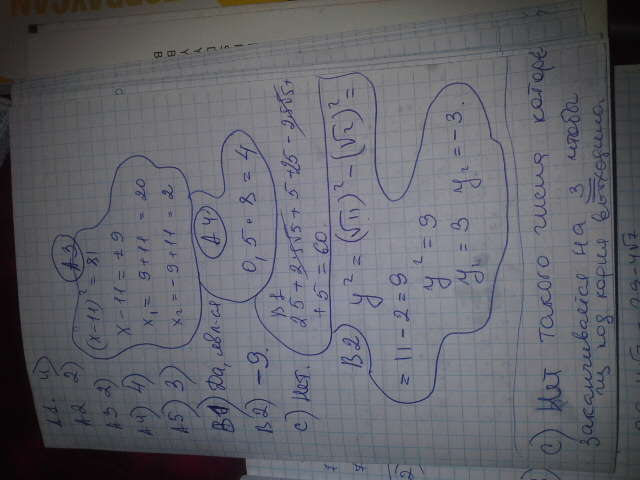 А1. 4)
А2 2)
А3 2)
А4) 4)
А5) 3)
В1) Да, явл-ся
В2) -9.
С) Нет.
А3
(x-11)² = 81
x-11 = ±9
x₁ = 9+11 = 20
x₂ = -9+11 = 2
А4.
0,5 · 8 = 4
В1
25 + 2·5√5 + 5 + 25 - 2·5√5 +
+ 5 = 60.
В2)
y² = (√11)² - (√2)² =
= 11 - 2 = 9
y² = 9
y₁ = 3 y₂ = -3.
С) Нет такого числа которе
заканчивается на 3 чтобы
из под корня выходила